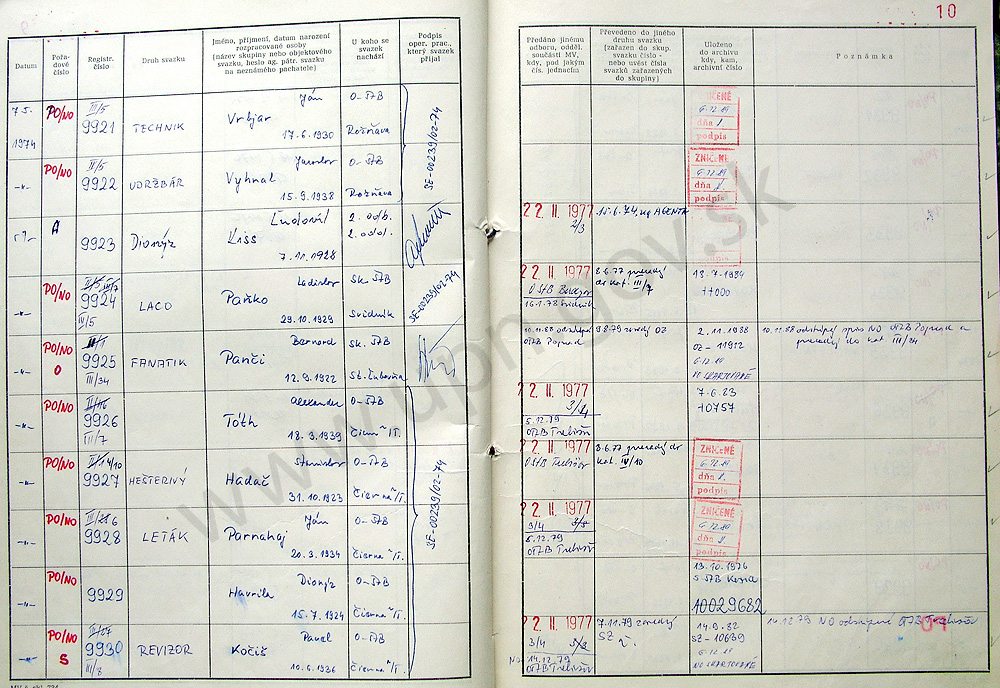 10
Datum
Pořa-
dové
číslo
Registr.
číslo
Druh svazku
Jméno, příjmení, datum narození
rozpracované osoby
(název skupiny nebo objektového
svazku, heslo ag. pátr. svazku
na neznámého pachatele)
U koho se
svazek
nachází
Podpis
oper. prac.,
který svazek
přijal
Předáno jinému
odboru, odděl.
součásti MV,
kdy, pod jakým
čís. jednacím
Převedeno do jiného
druhu svazku
(zařazen do skup.
svazku číslo -
nebo uvést čísla
svazků zařazených
do skupiny)
Uloženo
do archivu
kdy, kam,
archivní číslo
Poznámka
7.5.
1974
PO/NO
III/5
9921
TECHNIK
Ján
Vrbjar
17.6.1930
O-ŠTB
Rožňava
SE-00239/02-74
ZNIČENÉ
6.12.89
dňa
podpis
PO/NO
II/5
9922
UDRŽBÁR
Jaroslav
Vyhnal
15.9.1938
O-ŠTB
Rožňava
ZNIČENÉ
6.12.89
dňa
podpis
A
9923
Dionýz
Ľudovít
Kiss
7.11.1928
2. odb.
2. odd.
22 II. 1977
2/3
15.6.74, na AGENTA
PO/NO
9924
III/5
LACO
Ladislav
Paňko
29.10.1929
Sk. ŠTB
Svidník
SE-00239/02-74
22 II. 1977
16.1.78 Svidník
8.6.77 prevedený
do kat. III/7
18.7.1984
PO/NO
O
9925
III/34
FANATIK
Bernard
Panči
12.9.1922
Sk. ŠTB
St. Ľubovňa
10.11.88 odstúpený
OŠTB Poprad
2.11.1988
6.12.89
NO SKARTOVANÉ
10.11.88 odstúpený spis NO OŠTB Poprad a
prevedený do kat III/34
PO/NO
9926
III/7
Alexander
Tóth
18.3.1939
O-ŠTB
Čierna n/T.
22 II. 1977
3/4
5.12.79
OŠTB Trebišov
10757
PO/NO
9927
HEŠTERIVÝ
Stanislav
Hadač
31.10.1923
O-ŠTB
Čierna n/T.
SE-00239/02-74
22 II. 1977
OŠTB Trebišov
8.6.77 prevedený do
kat. IV/10
ZNIČENÉ
6.12.89
dňa
podpis
PO/NO
9928
LETÁK
Ján
Parnahaj
20.3.1934
O-ŠTB
Čierna n/T.
22 II. 1977
3/4
5.12.79
OŠTB Trebišov
ZNIČENÉ
6.12.89
dňa
podpis
PO/NO
9929
Dionýz
Havrila
15.7.1924
O-ŠTB
Čierna n/T.
13.10.1976
10029682
PO/NO
S
9930
III/8
REVIZOR
Pavel
Kočiš
10.6.1936
O-ŠTB
Čierna n/T.
22 II. 1977
3/4
NO 14.12.79
OŠTB Trebišov
7.11.79 zavedený
SZ
14.9.82
SZ-10639
6.12.89
NO SKARTOVANÉ
14.12.79 NO odstúpené OŠTB Trebišov
www.upn.gov.sk